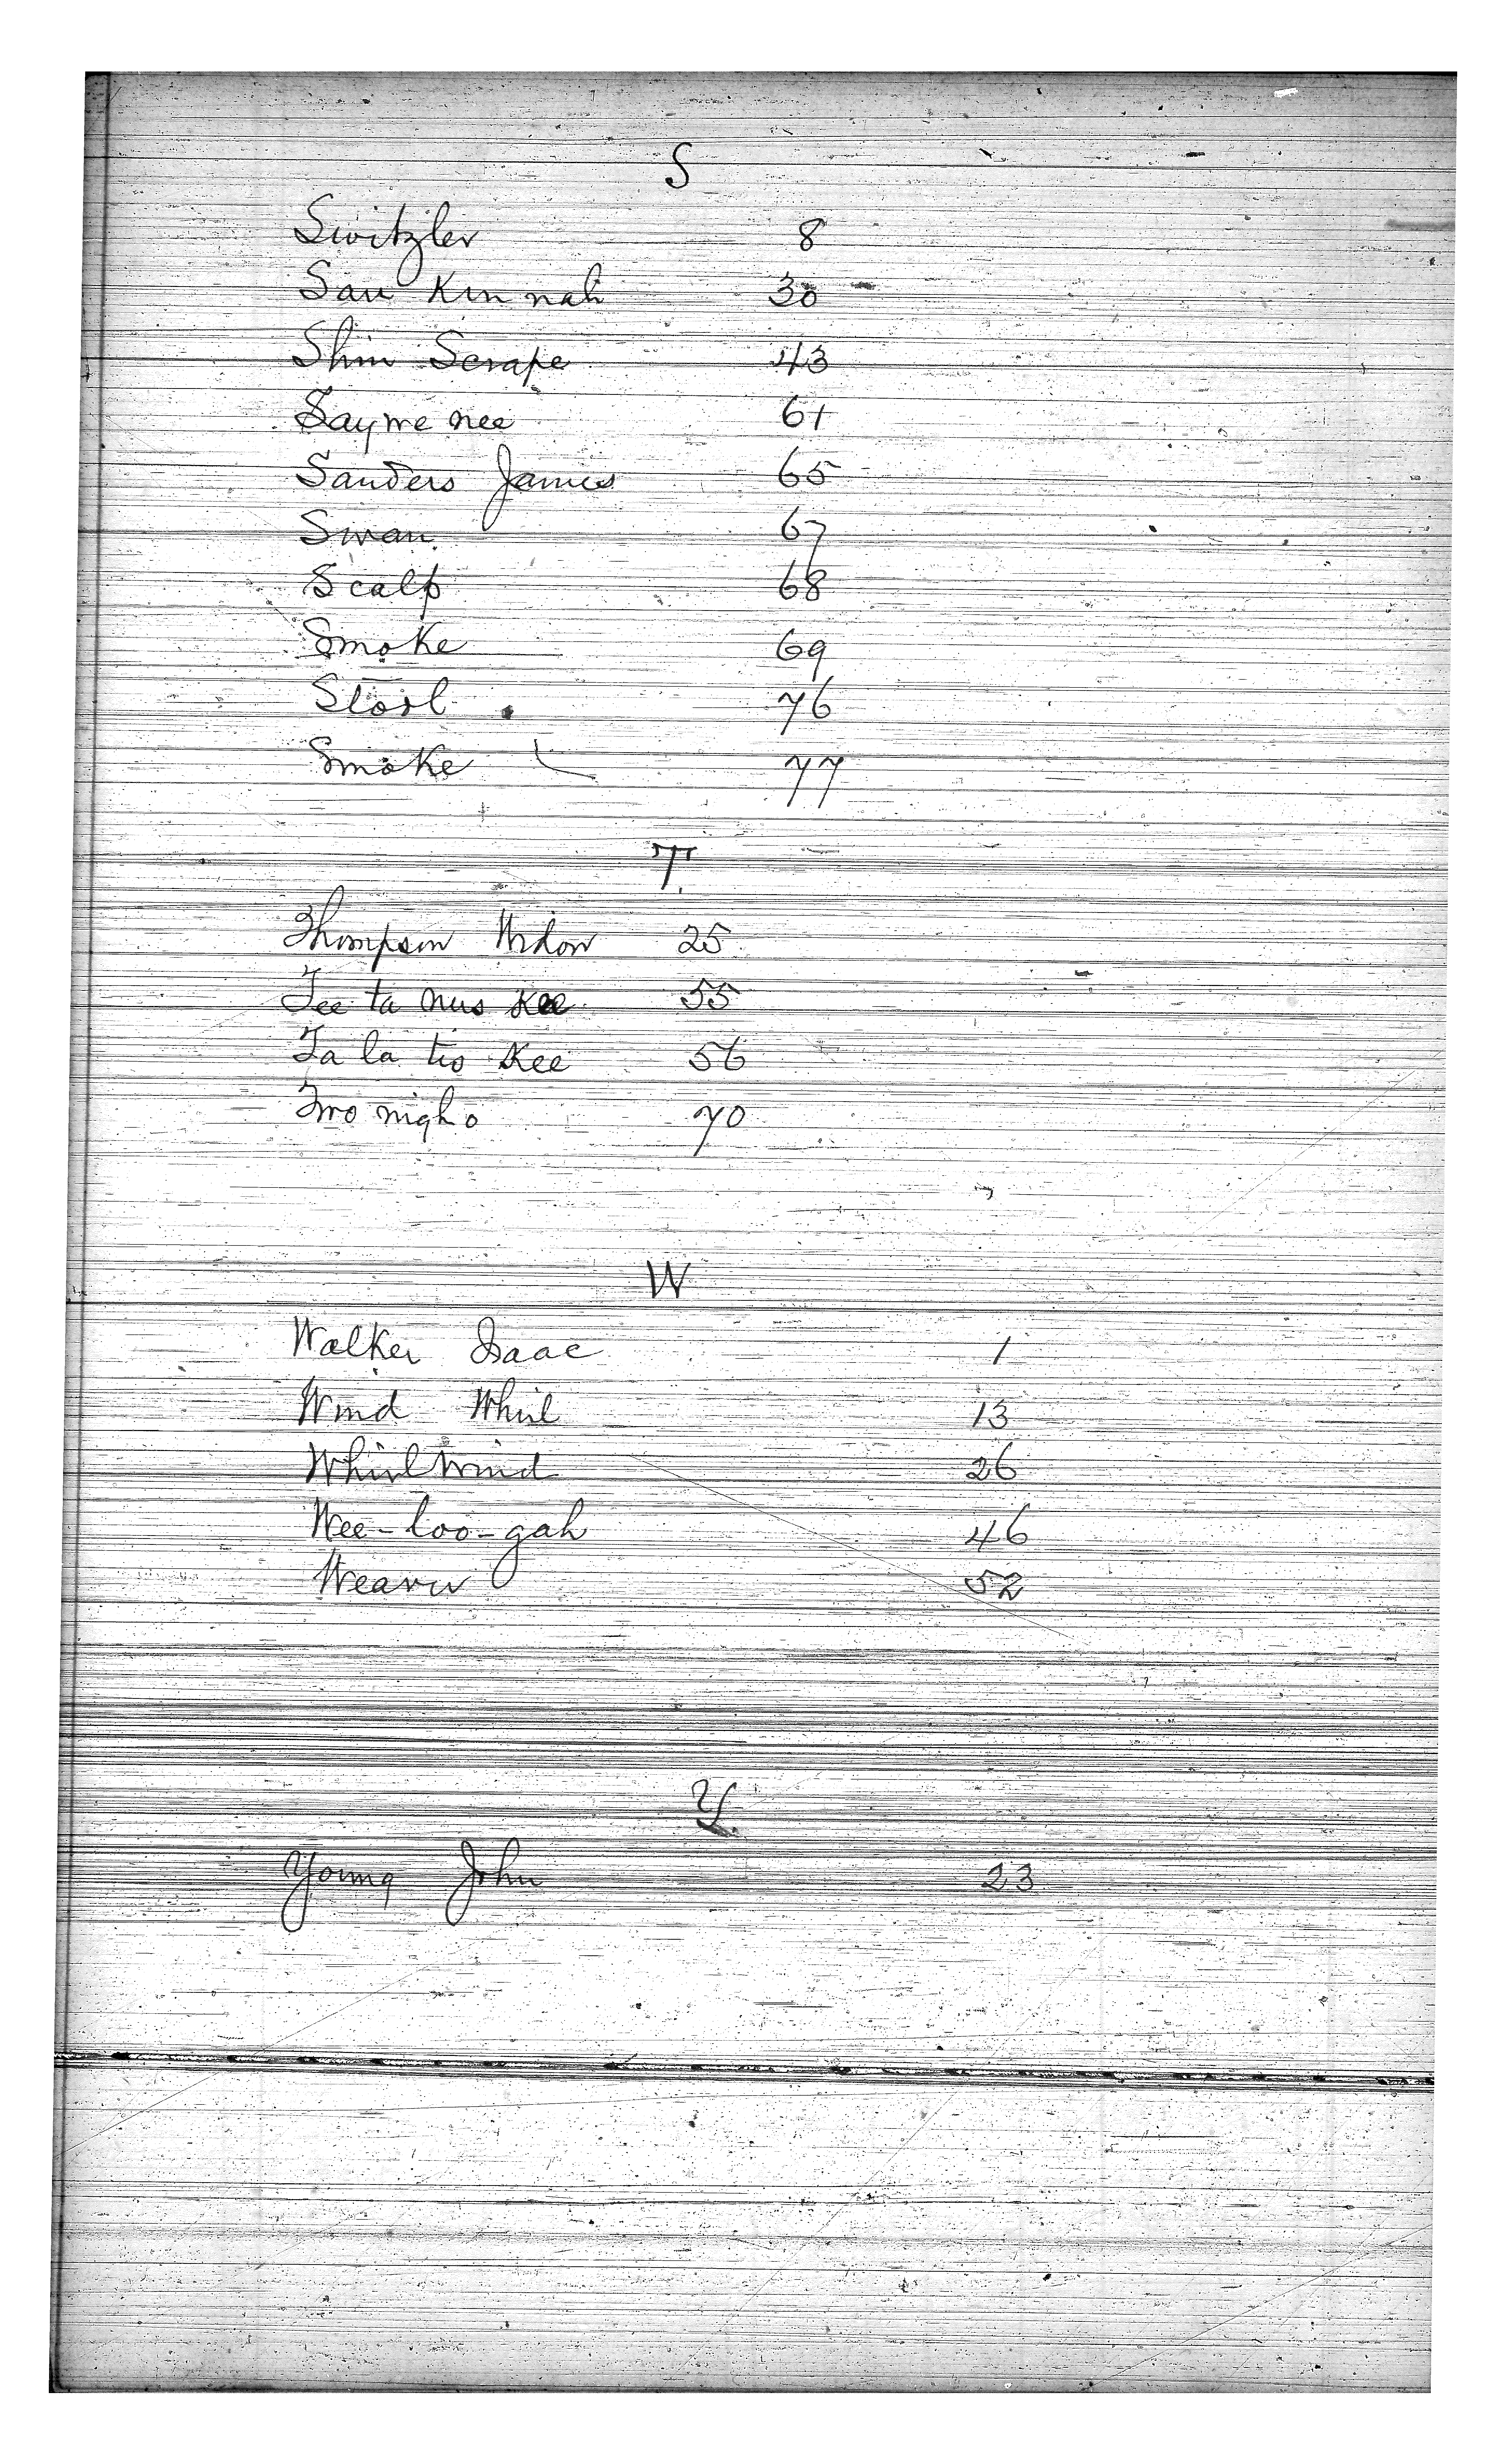 S
Switzler 8
Sau Kin nah 30
Shin Scrape 43
Sayme nee 61
Sanders James 65
Swan 67
Scalp 68
Smoke 69
Stool 76
Smoke 77
T.
Thompson Widow 25
Tee ta nus Kee 55
Ta la tis Kee 56
Two nigh o 70
W
Walker Isaac 1
Wind Whirl 13
Whirlwind 26
Wee-loo-gah 46
Weaver 52
Y
Young John 23